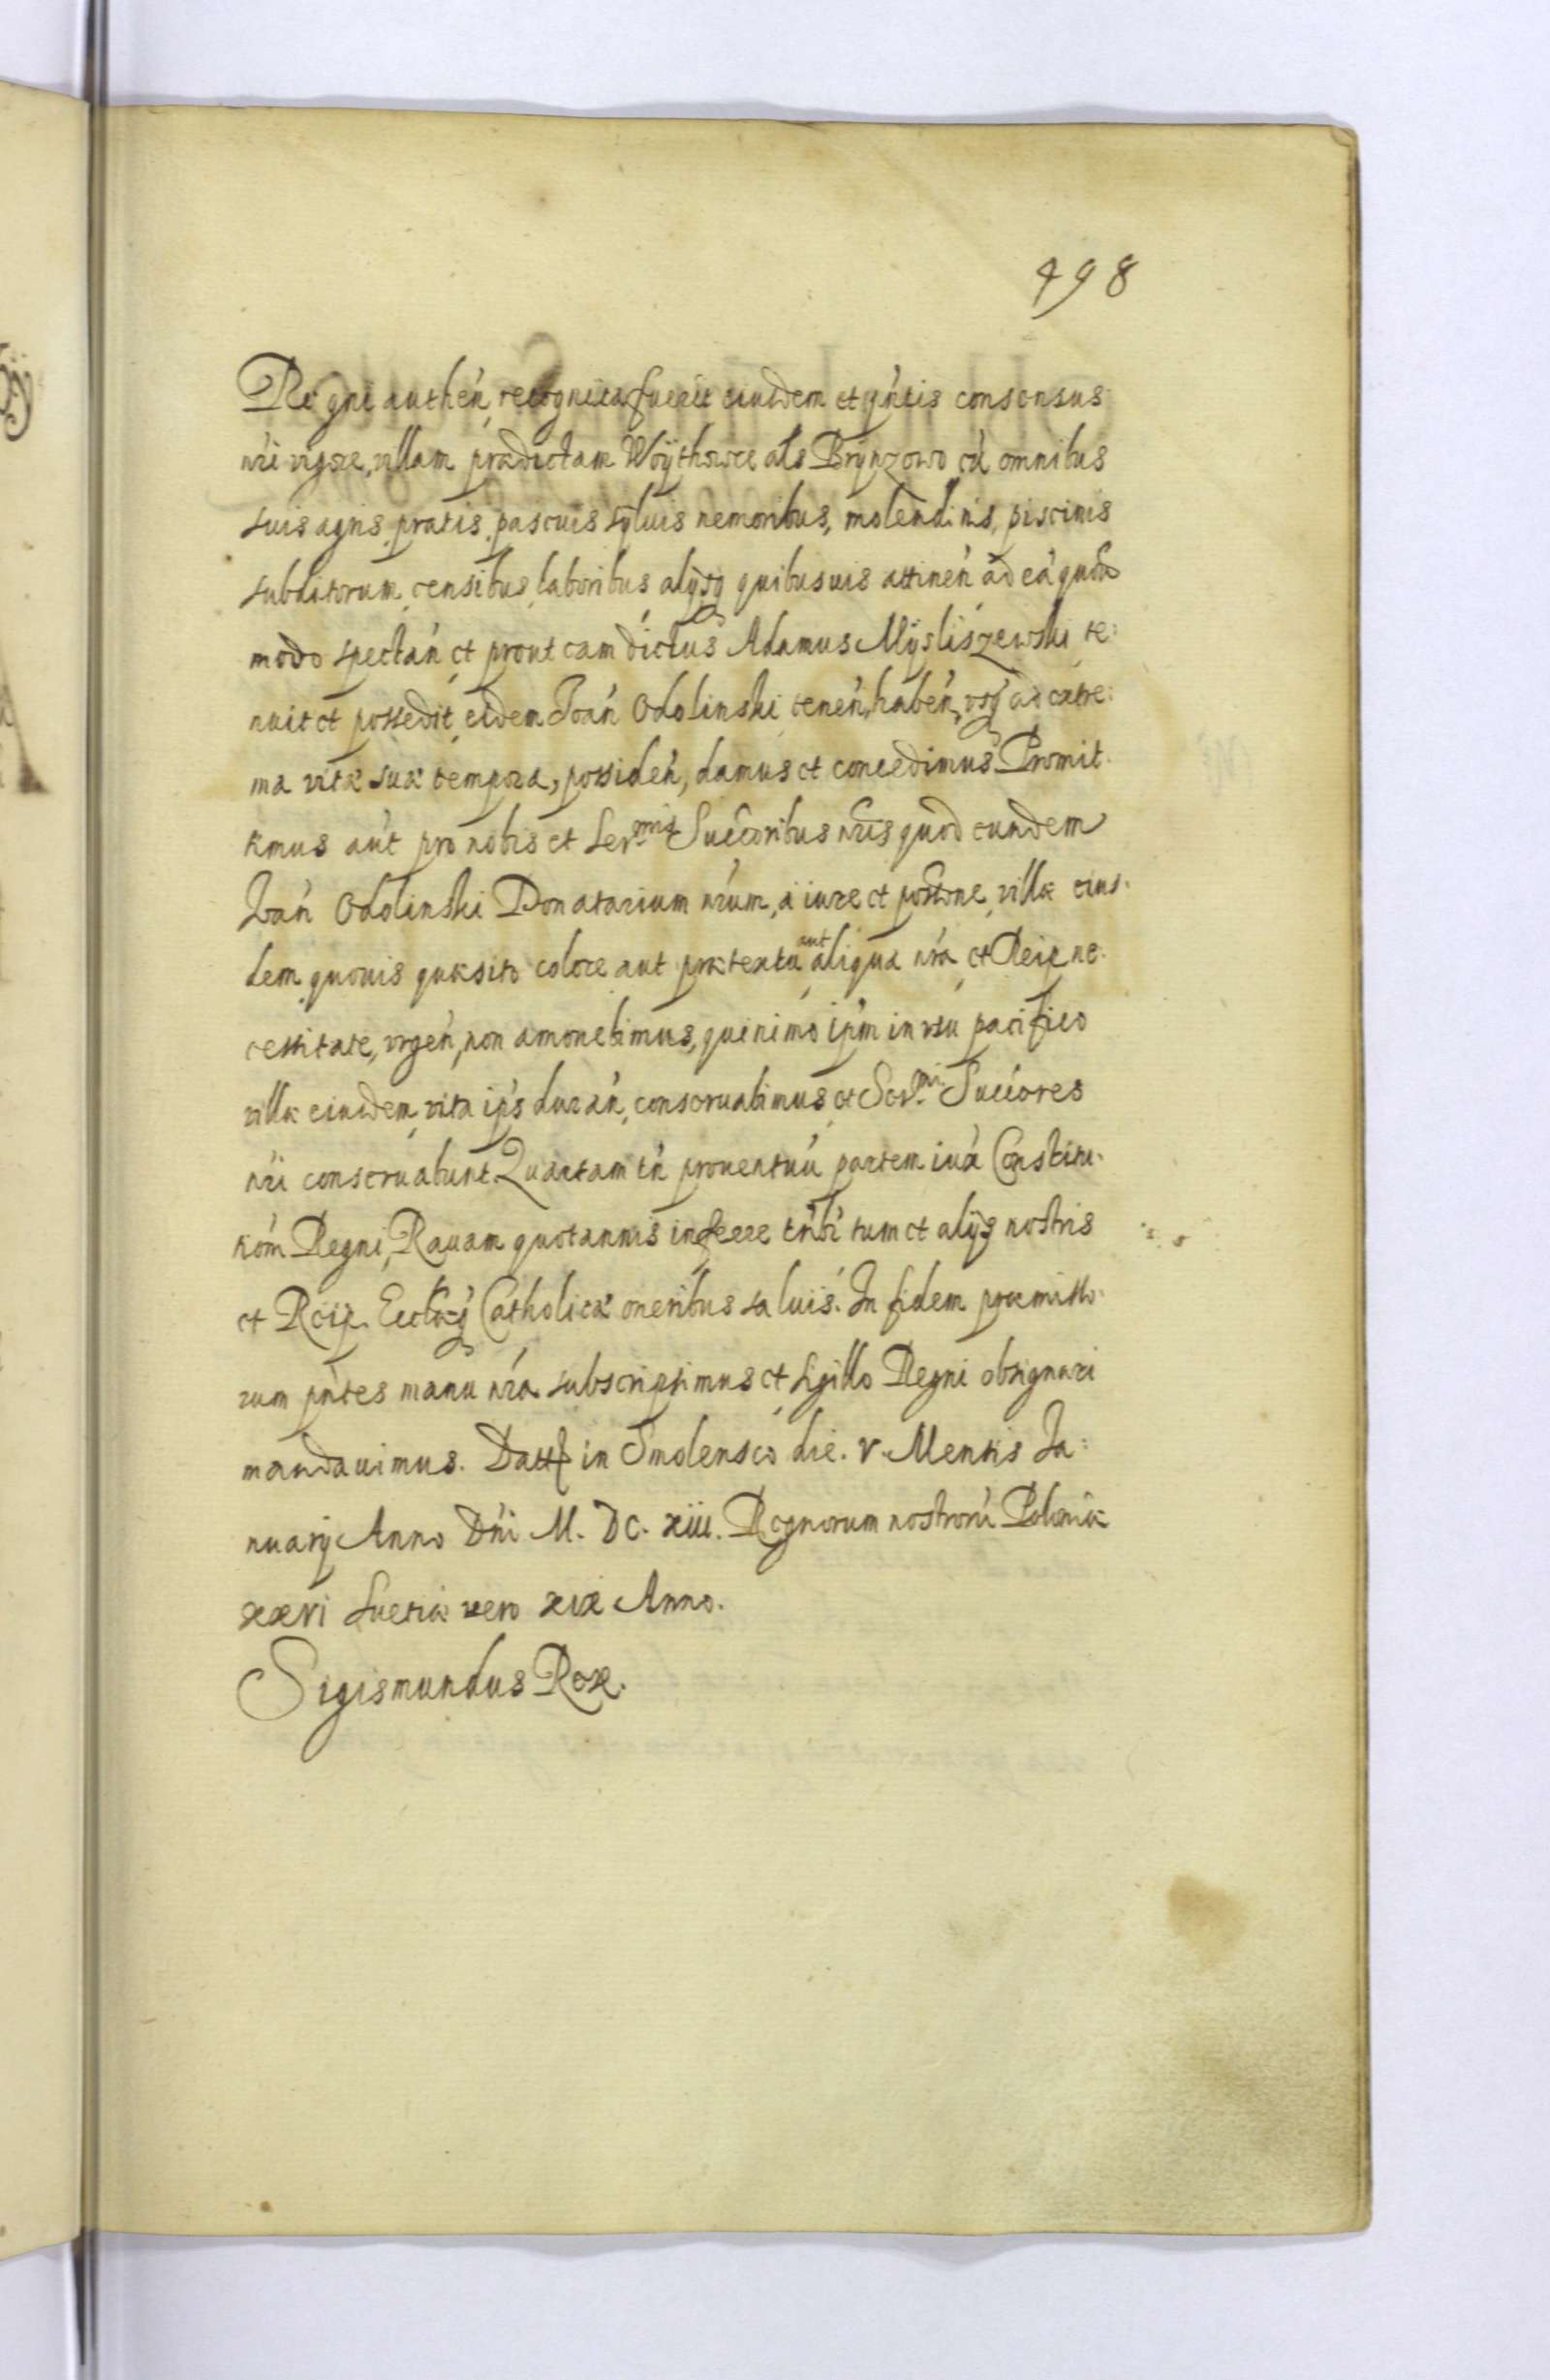 498
Regni authen̄ recognita fuerit eiusdem et p̄ntis consensus
nr̄i vigore, villam prædictam Woÿthowce als Brÿnzowo cū omnibus
suis agris, pratis, pascuis sÿluis nemoribus, molendinis, piscinis
subditorum, censibus, laboribus alÿsq quibusuis attinen̄ ad eā quouis
modo spectan̄ et prout eam dictus Adamus Mÿsliszewski te:
nuit et possedit, eidem Joan̄ Odolinski tenen̄, haben̄, vsq ad extre:
ma vitæ suæ tempora, possiden̄, damus et concedimus. Promit.
timus aūt pro nobis et Ser.mis Succ̄oribus nr̄is quod eundem
Joan̄ Odolinski Donatarium nr̄um, a iure et poss̄one, villæ eius.
dem, quouis quæsito colore aut prætextu aut aliqua nr̄a et Reip ne.
cessitate, vrgen̄, non amouebimus, quinimo ip̄m in vsu pacifico
villæ eiusdem, vita ip̄s duran̄, conseruabimus, et Ser.mi Succ̄ores
nr̄i conseruabunt. Quartam tn̄ prouentuū partem iux̄a Constitu.
tiōm Regni, Rauam quotannis inferre tn̄bi tum et alÿs nostris
et Reip. Ecclæq Catholicæ oneribus saluis. In fidem præmisso.
rum pn̄tes manu nr̄a subscripsimus et Sigillo Regni obsignari
mandauimus. Datt in Smolensco die. V. Mensis Ja:
nuarÿ Anno Dn̄i M. DC. xiii. Regnorum nostrorū Poloniæ
xxvi Suetiæ vero xix Anno.
Sigismundus Rex.